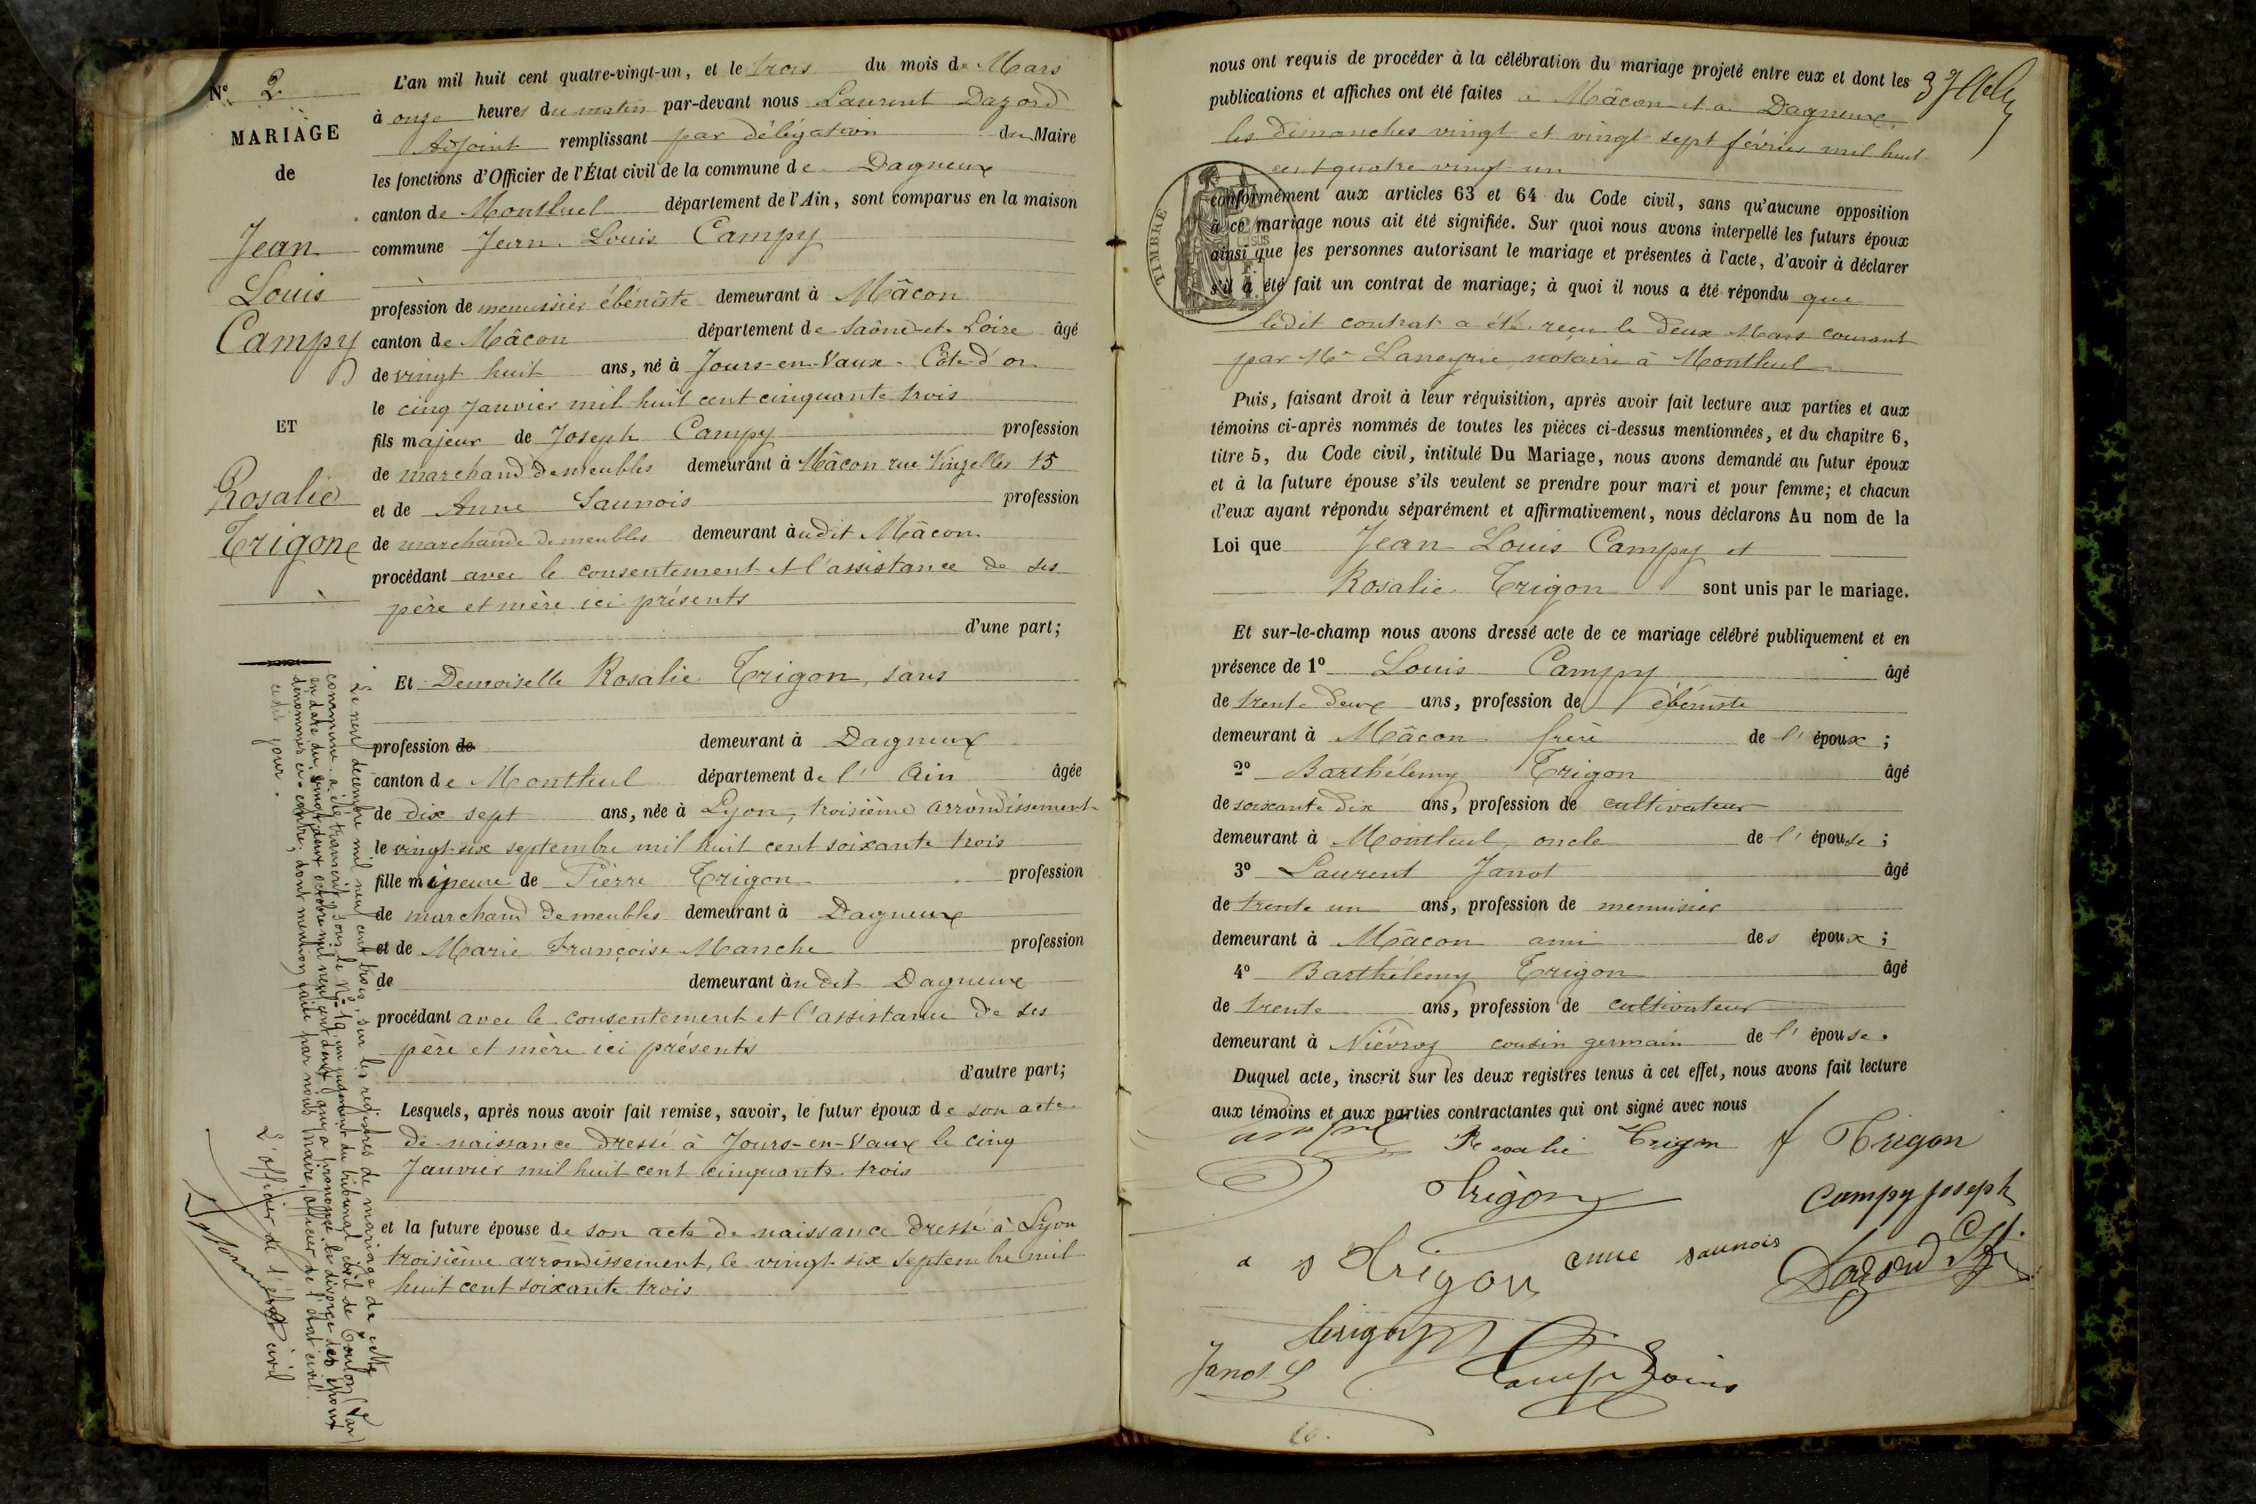 N° 2
MARIAGE
de
Jean
Louis
Campy
ET
Rosalie
Trigon
L'an mil huit cent quatre-vingt-un, et le trois du mois de Mars
à onze heures du matin par-devant nous Laurent Dazord
Adjoint remplissant par délégation du Maire
les fonctions d'Officier de l'État civil de la commune de Dagneux
canton de Montluel département de l'Ain, sont comparus en la maison
commune Jean Louis Campy
profession de menuisier ébéniste demeurant à Mâcon
canton de Mâcon département de Saône-et-Loire âgé
de vingt huit ans, né à Jours-en-Vaux - Côte-d'or
le cinq Janvier mil huit cent cinquante trois
fils majeur de Joseph Campy profession
de marchand de meubles demeurant à Mâcon rue Vinzelles 15
et de Anne Saunois profession
de marchande de meubles demeurant audit Mâcon
procédant avec le consentement et l'assistance de ses
père et mère ici présents
d'une part;
Et Demoiselle Rosalie Trigon, sans
profession de demeurant à Dagneux
canton de Montluel département de l'Ain âgée
de dix sept ans, née à Lyon, troisième arrondissement
le vingt-six septembre mil huit cent soixante trois
fille mineure de Pierre Trigon profession
de marchand de meubles demeurant à Dagneux
et de Marie Françoise Manche profession
de demeurant audit Dagneux
procédant avec le consentement et l'assistance de ses
père et mère ici présents
d'autre part;
Lesquels, après nous avoir fait remise, savoir, le futur époux de son acte
de naissance dressé à Jours-en-Vaux le cinq
Janvier mil huit cent cinquante trois
et la future épouse de son acte de naissance dressé à Lyon
troisième arrondissement, le vingt-six septembre mil
huit cent soixante trois
Le neuf décembre mil neuf cent trois, sur les registres de mariage de cette
commune a été transcrit, sous le N° 19, un jugement du tribunal civil de Toulon (Var)
en date du vingt-deux octobre mil neuf cent deux qui a prononcé le divorce des époux
dénommés ci-contre; dont mention faite par nous maire, officier de l'état civil
cedit jour.
L'officier de l'état civil
nous ont requis de procéder à la célébration du mariage projeté entre eux et dont les
publications et affiches ont été faites à Mâcon et à Dagneux
les dimanches vingt et vingt sept février mil huit
cent quatre vingt un
TIMBRE
conformément aux articles 63 et 64 du Code civil, sans qu'aucune opposition
à ce mariage nous ait été signifiée. Sur quoi nous avons interpellé les futurs époux
ainsi que les personnes autorisant le mariage et présentes à l'acte, d'avoir à déclarer
s'il a été fait un contrat de mariage; à quoi il nous a été répondu que
ledit contrat a été reçu le deux Mars courant
par Me Laneyrie notaire à Montluel
Puis, faisant droit à leur réquisition, après avoir fait lecture aux parties et aux
témoins ci-après nommés de toutes les pièces ci-dessus mentionnées, et du chapitre 6,
titre 5, du Code civil, intitulé Du Mariage, nous avons demandé au futur époux
et à la future épouse s'ils veulent se prendre pour mari et pour femme; et chacun
d'eux ayant répondu séparément et affirmativement, nous déclarons Au nom de la
Loi que Jean Louis Campy et
Rosalie Trigon sont unis par le mariage.
Et sur-le-champ nous avons dressé acte de ce mariage célébré publiquement et en
présence de 1° Louis Campy âgé
de trente deux ans, profession de ébéniste
demeurant à Mâcon frère de l'époux;
2° Barthélemy Trigon âgé
de soixante dix ans, profession de cultivateur
demeurant à Montluel, oncle de l'épouse;
3° Laurent Janot âgé
de trente un ans, profession de menuisier
demeurant à Mâcon ami des époux;
4° Barthélemy Trigon âgé
de trente ans, profession de cultivateur
demeurant à Niévroz cousin germain de l'épouse.
Duquel acte, inscrit sur les deux registres tenus à cet effet, nous avons fait lecture
aux témoins et aux parties contractantes qui ont signé avec nous
Rosalie Trigon Trigon
Trigon Campy Joseph
Trigon anne saunois Dazord
Trigon
Janot L Campy Louis